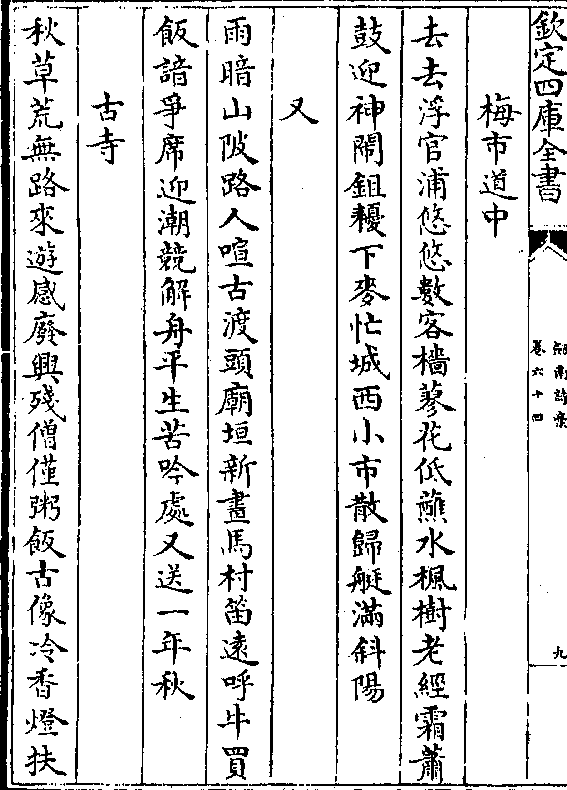 欽定四庫全書
劍南詩槀
卷六十四
九
梅市道中
去去浮官浦悠悠數客檣蓼花低蘸水楓樹老經霜蕭
鼓迎神鬧鉏耰下麥忙城西小市散歸艇滿斜陽
又
雨暗山陂路人喧古渡頭廟垣新畫馬村笛遠呼牛買
飯諳爭席迎潮競解舟平生苦吟處又送一年秋
古寺
秋草荒無路來遊感廢興殘僧僅粥飯古像冷香燈扶